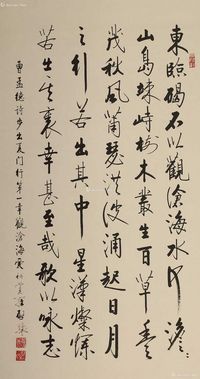 東臨碣石以觀滄海水何澹〻
山島竦峙樹木叢生百草豐
茂秋風蕭瑟洪波涌起日月
之行若出其中星漢燦爛
若出其裏幸甚至哉歌以詠志
曹孟德詩步出夏门行第一章觀滄海